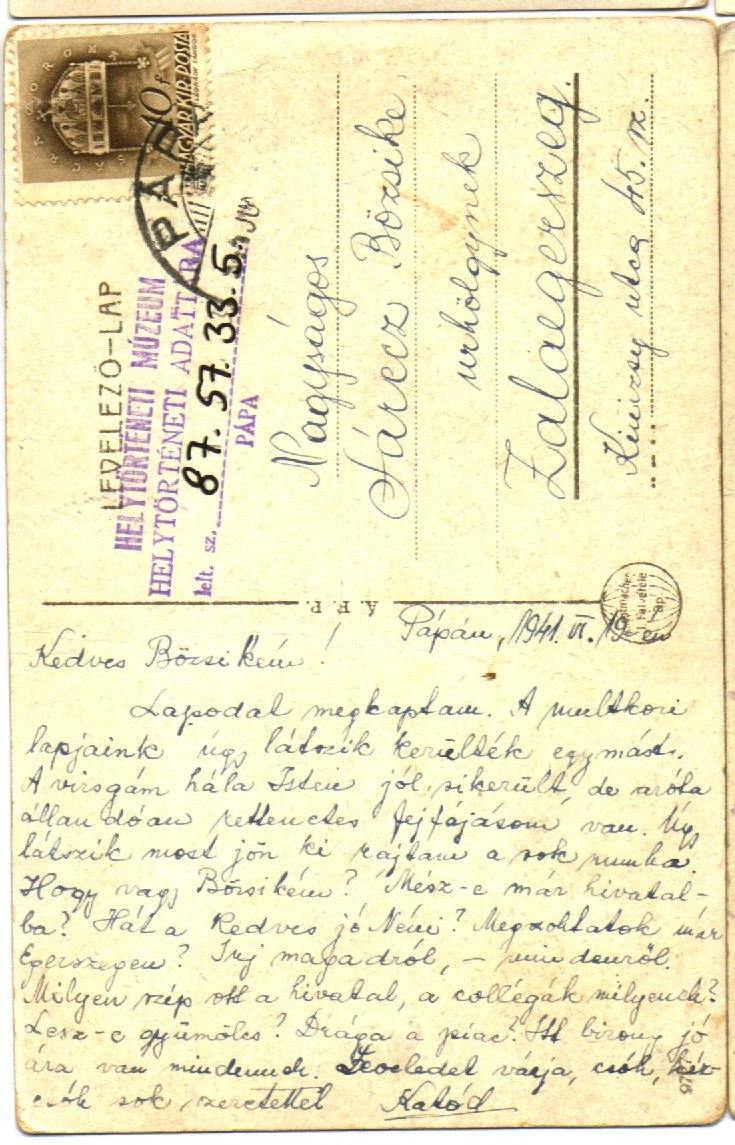 MAGYAR KIR. POSTA
10f
PÁPA
LEVELEZŐ-LAP
HELYTÖRTÉNETI MÚZEUM
HELYTÖRTÉNETI ADATTÁRA
lelt. sz. 87. 57. 33. 5.
PÁPA
Nagyságos
Sárecz Bözsike
urhölgynek
Zalaegerszeg.
Kinizsy utca 45. sz.
A. F. P.
Pápán, 1941. VI. 19 én
Kedves Bözsikém!
Lapodat megkaptam. A multkori
lapjaink úgy látszik kerülték egymást.
A virsgám hála Isten jól sikerült, de aróta
állandóan rettenetes fejfájásom van. Úgy
látszik most jön ki rajtam a sok munka.
Hogy vagy Bözsikém? Mész-e már hivatal-
ba? Hát a Kedves jó Néni? Megszoktatok már
Egerszegen? Irj magadról, – mindenről.
Milyen szép ott a hivatal, a collégák milyenek?
Lesz-e gyümölcs? Drága a piac? Itt bizony jó
ára van mindennek. Leveledet várja, csók, kéz-
csók sok szeretettel Katód